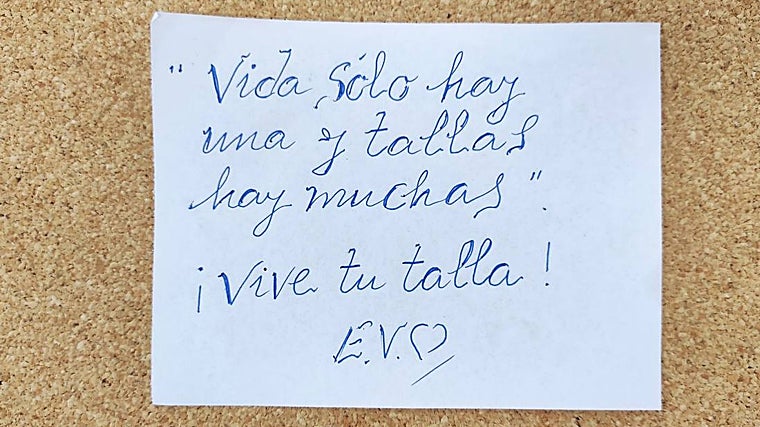 "Vida, sólo hay
una y tallas
hay muchas".
¡Vive tu talla!
E.V.♡